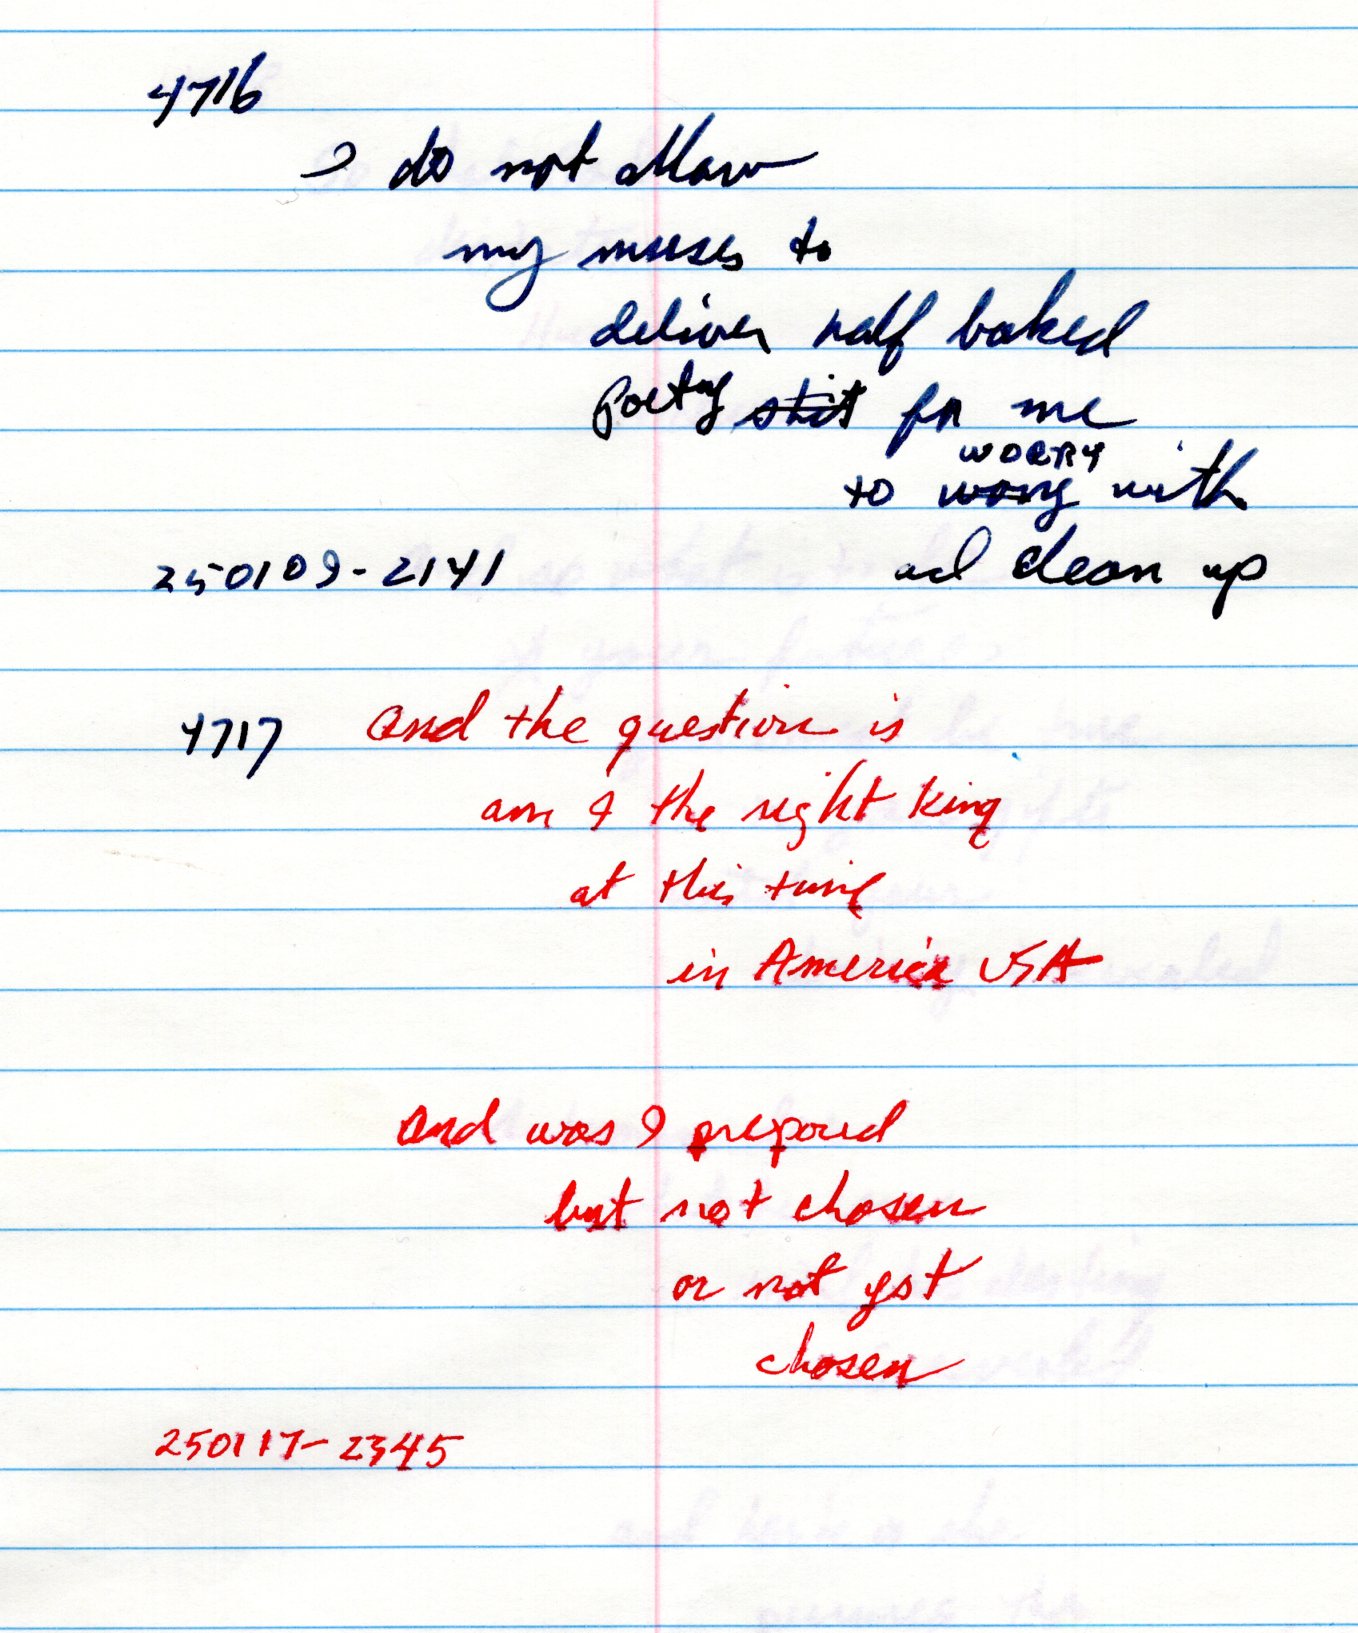 4716
I do not allow
my muses to
deliver half baked
poetry shit for me
WORRY
to worry with
and clean up
250109-2141
4717 and the question is
am I the right king
at this time
in America USA
and was I prepared
but not chosen
or not yet
chosen
250117-2345